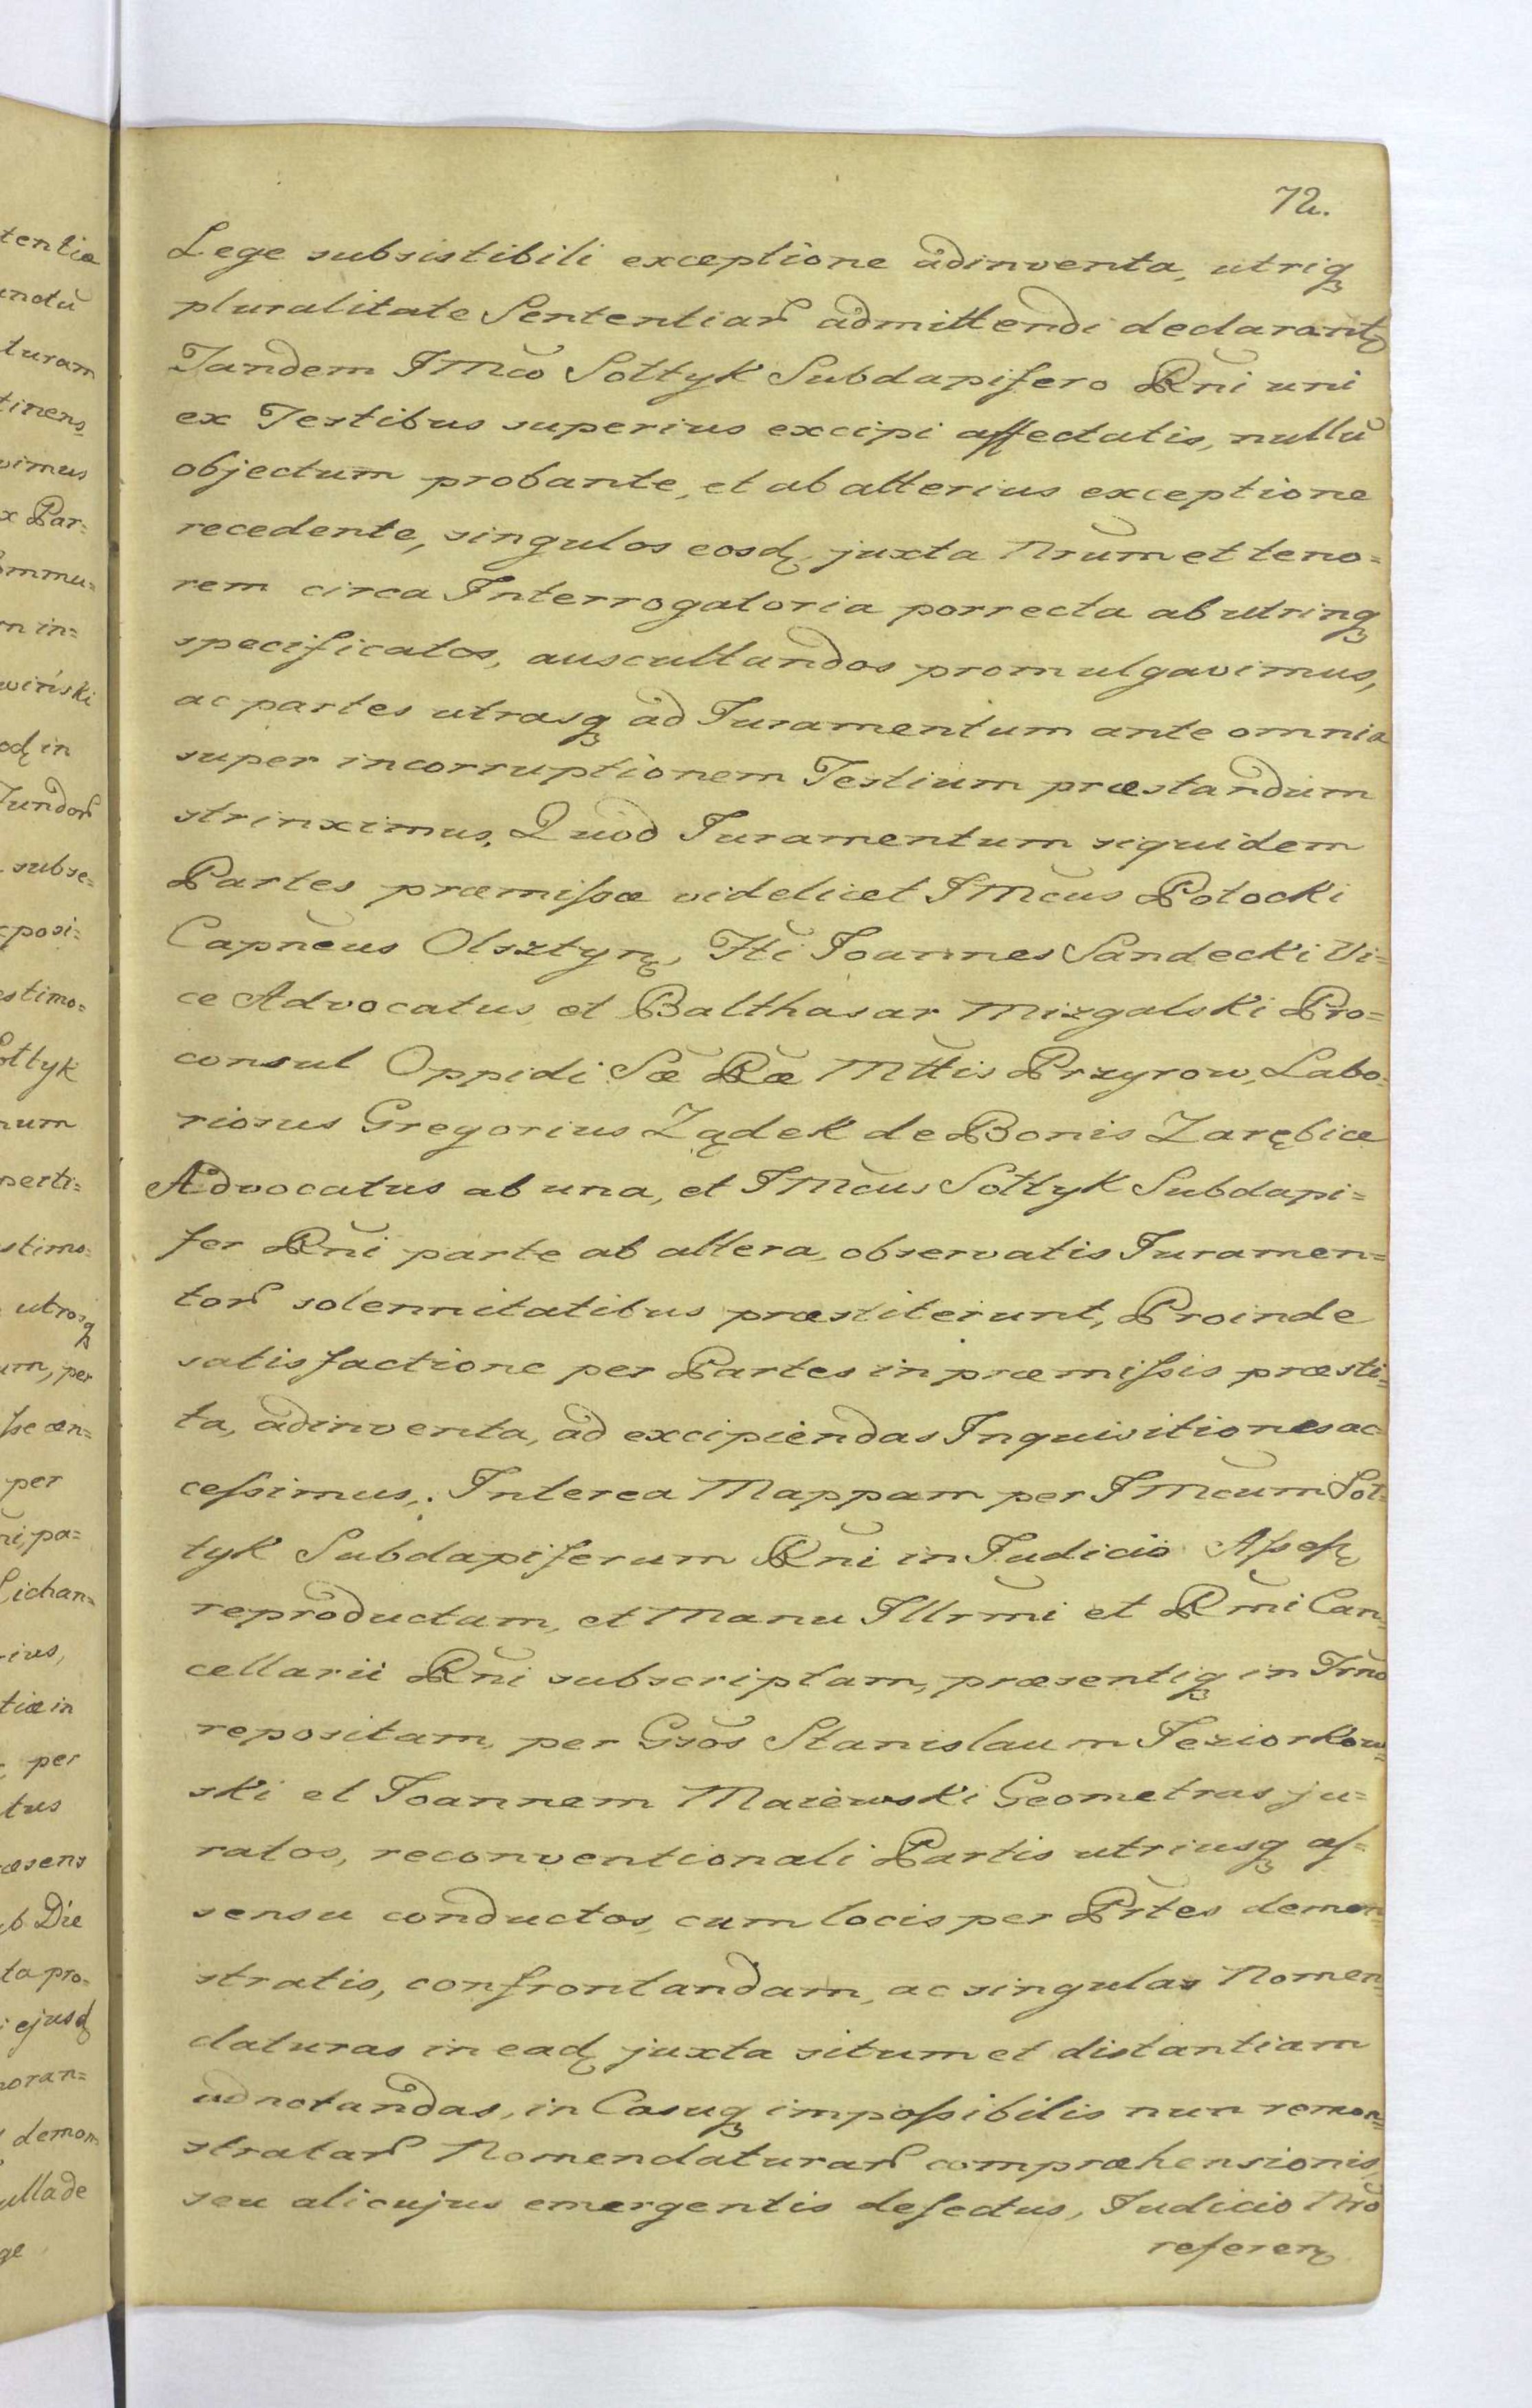 72.
Lege subsistibili exceptione adinventa, utriq
pluralitate Sententiar admittendi declarant
Tandem JMco Sołtyk Subdapifero Rni uni
ex Testibus superius excipi affectatis, nullū
objectum probante, et ab alterius exceptione
recedente, singulos eosd juxta Nrum et teno=
rem circa Interrogatoria porrecta ab utrinq
specificatos, auscultandos promulgavimus,
ac partes utrasq ad Juramentum ante omnia
super incorruptionem Testium præstandum
strinximus. Quod Juramentum siquidem
Partes præmissæ videlicet JMcus Potocki
Capneus Olsztyn, Hti Joannes Sandecki Vi=
ce Advocatus et Balthasar Mizgalski Pro=
consul Oppidi Sæ Ræ Mttis Przyrow, Labo=
riosus Gregorius Ządek de Bonis Zarębice
Advocatus ab una, et JMcus Sołtyk Subdapi=
fer Rni parte ab altera, observatis Juramen=
tor solennitatibus præstiterunt, Proinde
satisfactione per Partes in præmissis præsti=
ta, adinventa, ad excipiendas Inquisitiones ac=
cessimus. Interea Mappam per JMcum Soł=
tyk Subdapiferum Rni in Judicio Assess
reproductam, et Manu Illrmi et Rmi Can=
cellarii Rni subscriptam, præsentiq in Trno
repositam, per Gsos Stanislaum Jeziorkow=
ski et Joannem Maiewski Geometras ju=
ratos, reconventionali Partis utriusq as=
sensu conductos, cum locis per Prtes demon=
stratis, confrontandam, ac singulas Nomen=
claturas in ead juxta situm et distantiam
adnotandas, in Casuq impossibilis nun remon=
stratar Nomenclaturar compræhensionis,
seu alicujus emergentis defectus, Judicio Nro
referen